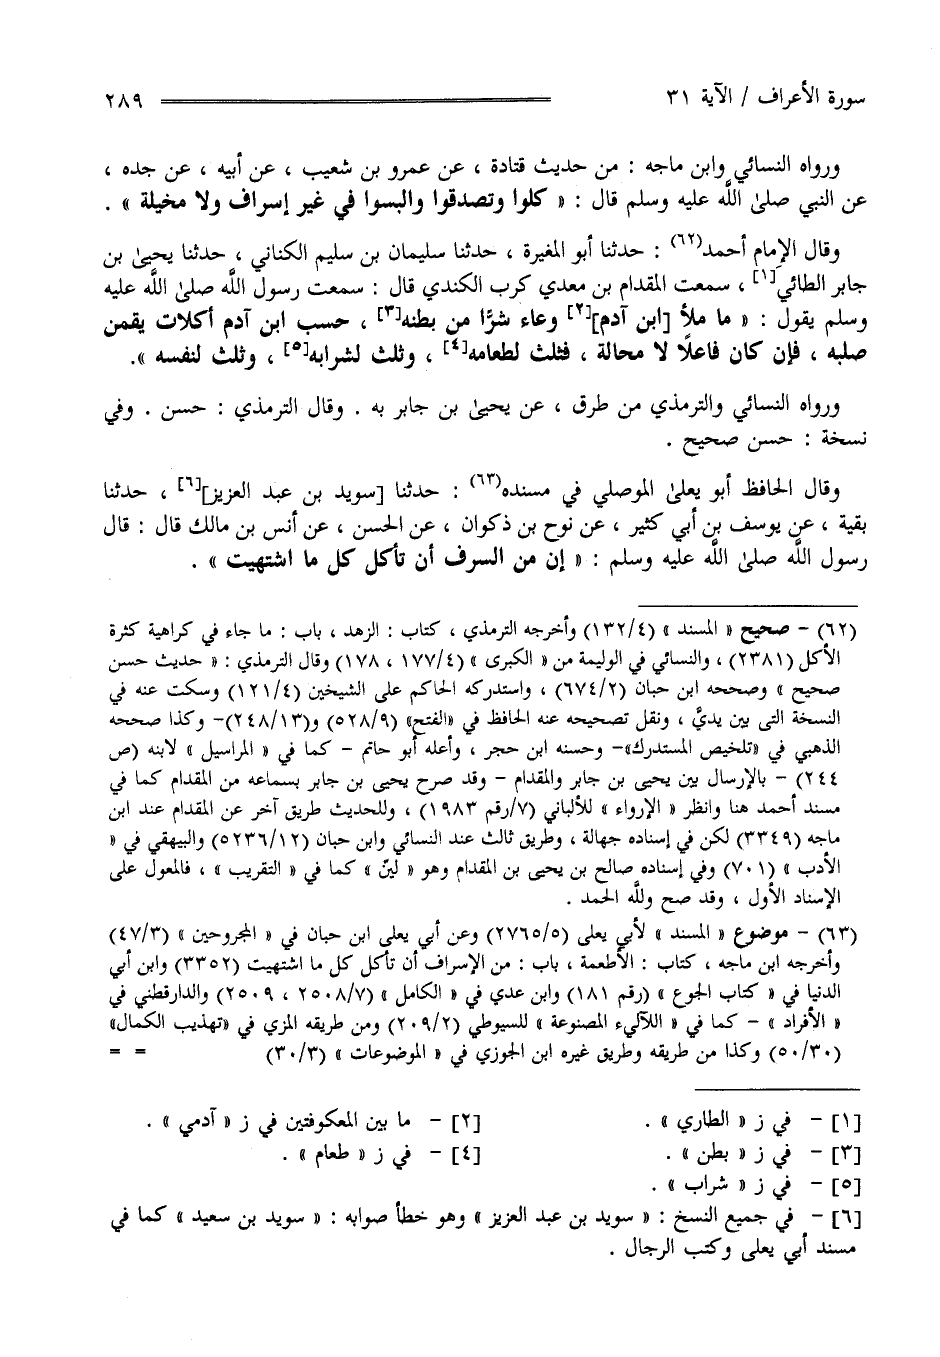 سورة الأعراف / الآية ٣١ ٢٨٩
ورواه النسائي وابن ماجه : من حديث قتادة ، عن عمرو بن شعيب ، عن أبيه ، عن جده ،
عن النبي صلىٰ اللَّه عليه وسلم قال : « كلوا وتصدقوا والبسوا في غير إسراف ولا مخيلة » .
وقال الإمام أحمد(٦٢) : حدثنا أبو المغيرة ، حدثنا سليمان بن سليم الكناني ، حدثنا يحيىٰ بن
جابر الطائي[١] ، سمعت المقدام بن معدي كرب الكندي قال : سمعت رسول اللَّه صلىٰ اللَّه عليه
وسلم يقول : « ما ملأ [ابن آدم][٢] وعاء شرًّا من بطنه[٣] ، حسب ابن آدم أكلات يقمن
صلبه ، فإن كان فاعلًا لا محالة ، فثلث لطعامه[٤] ، وثلث لشرابه[٥] ، وثلث لنفسه ».
ورواه النسائي والترمذي من طرق ، عن يحيىٰ بن جابر به . وقال الترمذي : حسن . وفي
نسخة : حسن صحيح .
وقال الحافظ أبو يعلىٰ الموصلي في مسنده(٦٣) : حدثنا [سويد بن عبد العزيز][٦] ، حدثنا
بقية ، عن يوسف بن أبي كثير ، عن نوح بن ذكوان ، عن الحسن ، عن أنس بن مالك قال : قال
رسول اللَّه صلىٰ اللَّه عليه وسلم : « إن من السرف أن تأكل كل ما اشتهيت » .
(٦٢) - صحيح « المسند » (١٣٢/٤) وأخرجه الترمذي ، كتاب : الزهد ، باب : ما جاء في كراهية كثرة
الأكل (٢٣٨١) ، والنسائي في الوليمة من « الكبرى » (١٧٧/٤ ، ١٧٨) وقال الترمذي : « حديث حسن
صحيح » وصححه ابن حبان (٦٧٤/٢) ، واستدركه الحاكم على الشيخين (١٢١/٤) وسكت عنه في
النسخة التى بين يديَّ ، ونقل تصحيحه عنه الحافظ في «الفتح» (٥٢٨/٩) و(٢٤٨/١٣)- وكذا صححه
الذهبي في «تلخيص المستدرك»- وحسنه ابن حجر ، وأعله أبو حاتم - كما في « المراسيل » لابنه (ص
٢٤٤) - بالإرسال بين يحيى بن جابر والمقدام - وقد صرح يحيى بن جابر بسماعه من المقدام كما في
مسند أحمد هنا وانظر « الإرواء » للألباني (٧/رقم ١٩٨٣) ، وللحديث طريق آخر عن المقدام عند ابن
ماجه (٣٣٤٩) لكن في إسناده جهالة ، وطريق ثالث عند النسائي وابن حبان (٥٢٣٦/١٢) والبيهقي في «
الأدب » (٧٠١) وفي إسناده صالح بن يحيى بن المقدام وهو « لينّ » كما في « التقريب » ، فالمعول على
الإسناد الأول ، وقد صح وللَّه الحمد .
(٦٣) - موضوع « المسند » لأبي يعلى (٢٧٦٥/٥) وعن أبي يعلى ابن حبان في « المجروحين » (٤٧/٣)
وأخرجه ابن ماجه ، كتاب : الأطعمة ، باب : من الإسراف أن تأكل كل ما اشتهيت (٣٣٥٢) وابن أبي
الدنيا في « كتاب الجوع » (رقم ١٨١) وابن عدي في « الكامل » (٢٥٠٨/٧ ، ٢٥٠٩) والدارقطني في
« الأفراد » - كما في « اللآليء المصنوعة » للسيوطي (٢٠٩/٢) ومن طريقه المزي في «تهذيب الكمال»
(٥٠/٣٠) وكذا من طريقه وطريق غيره ابن الجوزي في « الموضوعات » (٣٠/٣) = =
[١] - في ز « الطاري » . [٢] - ما بين المعكوفتين في ز « آدمي » .
[٣] - في ز « بطن » . [٤] - في ز « طعام » .
[٥] - في ز « شراب » .
[٦] - في جميع النسخ : « سويد بن عبد العزيز » وهو خطأ صوابه : « سويد بن سعيد » كما في
مسند أبي يعلى وكتب الرجال .